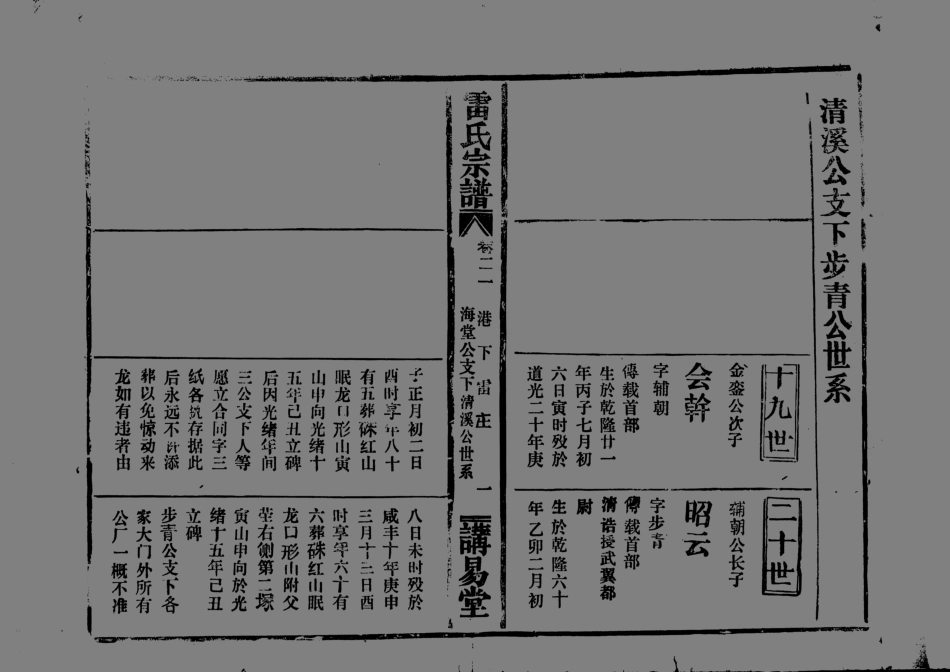 清溪公支下步青公世系
十九世
金銮公次子
会幹
字辅朝
傳载首部
生於乾隆廿一
年丙子七月初
六日寅时殁於
道光二十年庚
子正月初二日
酉时享年八十
有五葬硃红山
眠龙口形山寅
山申向光绪十
五年己丑立碑
后因光绪年间
三公支下人等
愿立合同字三
纸各执存据此
后永远不许添
葬以免惊动来
龙如有违者由
二十世
辅朝公长子
昭云
字步青
傳载首部
清诰授武翼都
尉
生於乾隆六十
年乙卯二月初
八日未时殁於
咸丰十年庚申
三月十三日酉
时享年六十有
六葬硃红山眠
龙口形山附父
茔右侧第二塚
寅山申向於光
绪十五年己丑
立碑
步青公支下各
家大门外所有
公厂一概不准
雷氏宗譜
卷二二
港下雷庄
海堂公支下清溪公世系
一
講易堂